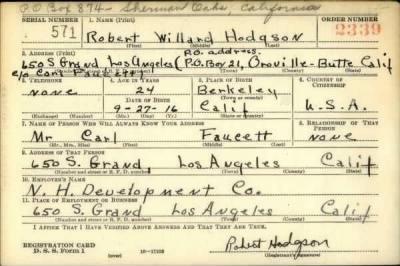 PO Box 874 - Sherman Oaks, California
SERIAL NUMBER 1. NAME (Print) ORDER NUMBER
571 Robert Willard Hodgson 2339
(First) (Middle) (Last)
2. ADDRESS (Print) P.O. address.
650 S Grand Los Angeles (P.O. Box 21, Oroville-Butte Calif
c/o Carl Faucett
3. TELEPHONE 4. AGE IN YEARS 5. PLACE OF BIRTH 6. COUNTRY OF CITIZENSHIP
none 24 Berkeley
DATE OF BIRTH (Town or county)
9-27-16 Calif U.S.A.
(Mo.) (Day) (Yr.) (State or country)
7. NAME OF PERSON WHO WILL ALWAYS KNOW YOUR ADDRESS 8. RELATIONSHIP OF THAT PERSON
Mr Carl Faucett none
(Mr., Mrs., Miss) (First) (Middle) (Last)
9. ADDRESS OF THAT PERSON
650 S. Grand Los Angeles Calif
(Number and street or R. F. D. number) (Town) (County) (State)
10. EMPLOYER'S NAME
N. H. Development Co.
11. PLACE OF EMPLOYMENT OR BUSINESS
650 S. Grand Los Angeles Calif
(Number and street or R. F. D. number) (Town) (County) (State)
I AFFIRM THAT I HAVE VERIFIED ABOVE ANSWERS AND THAT THEY ARE TRUE.
REGISTRATION CARD
D. S. S. Form 1 Robert Hodgson
(Registrant's signature)